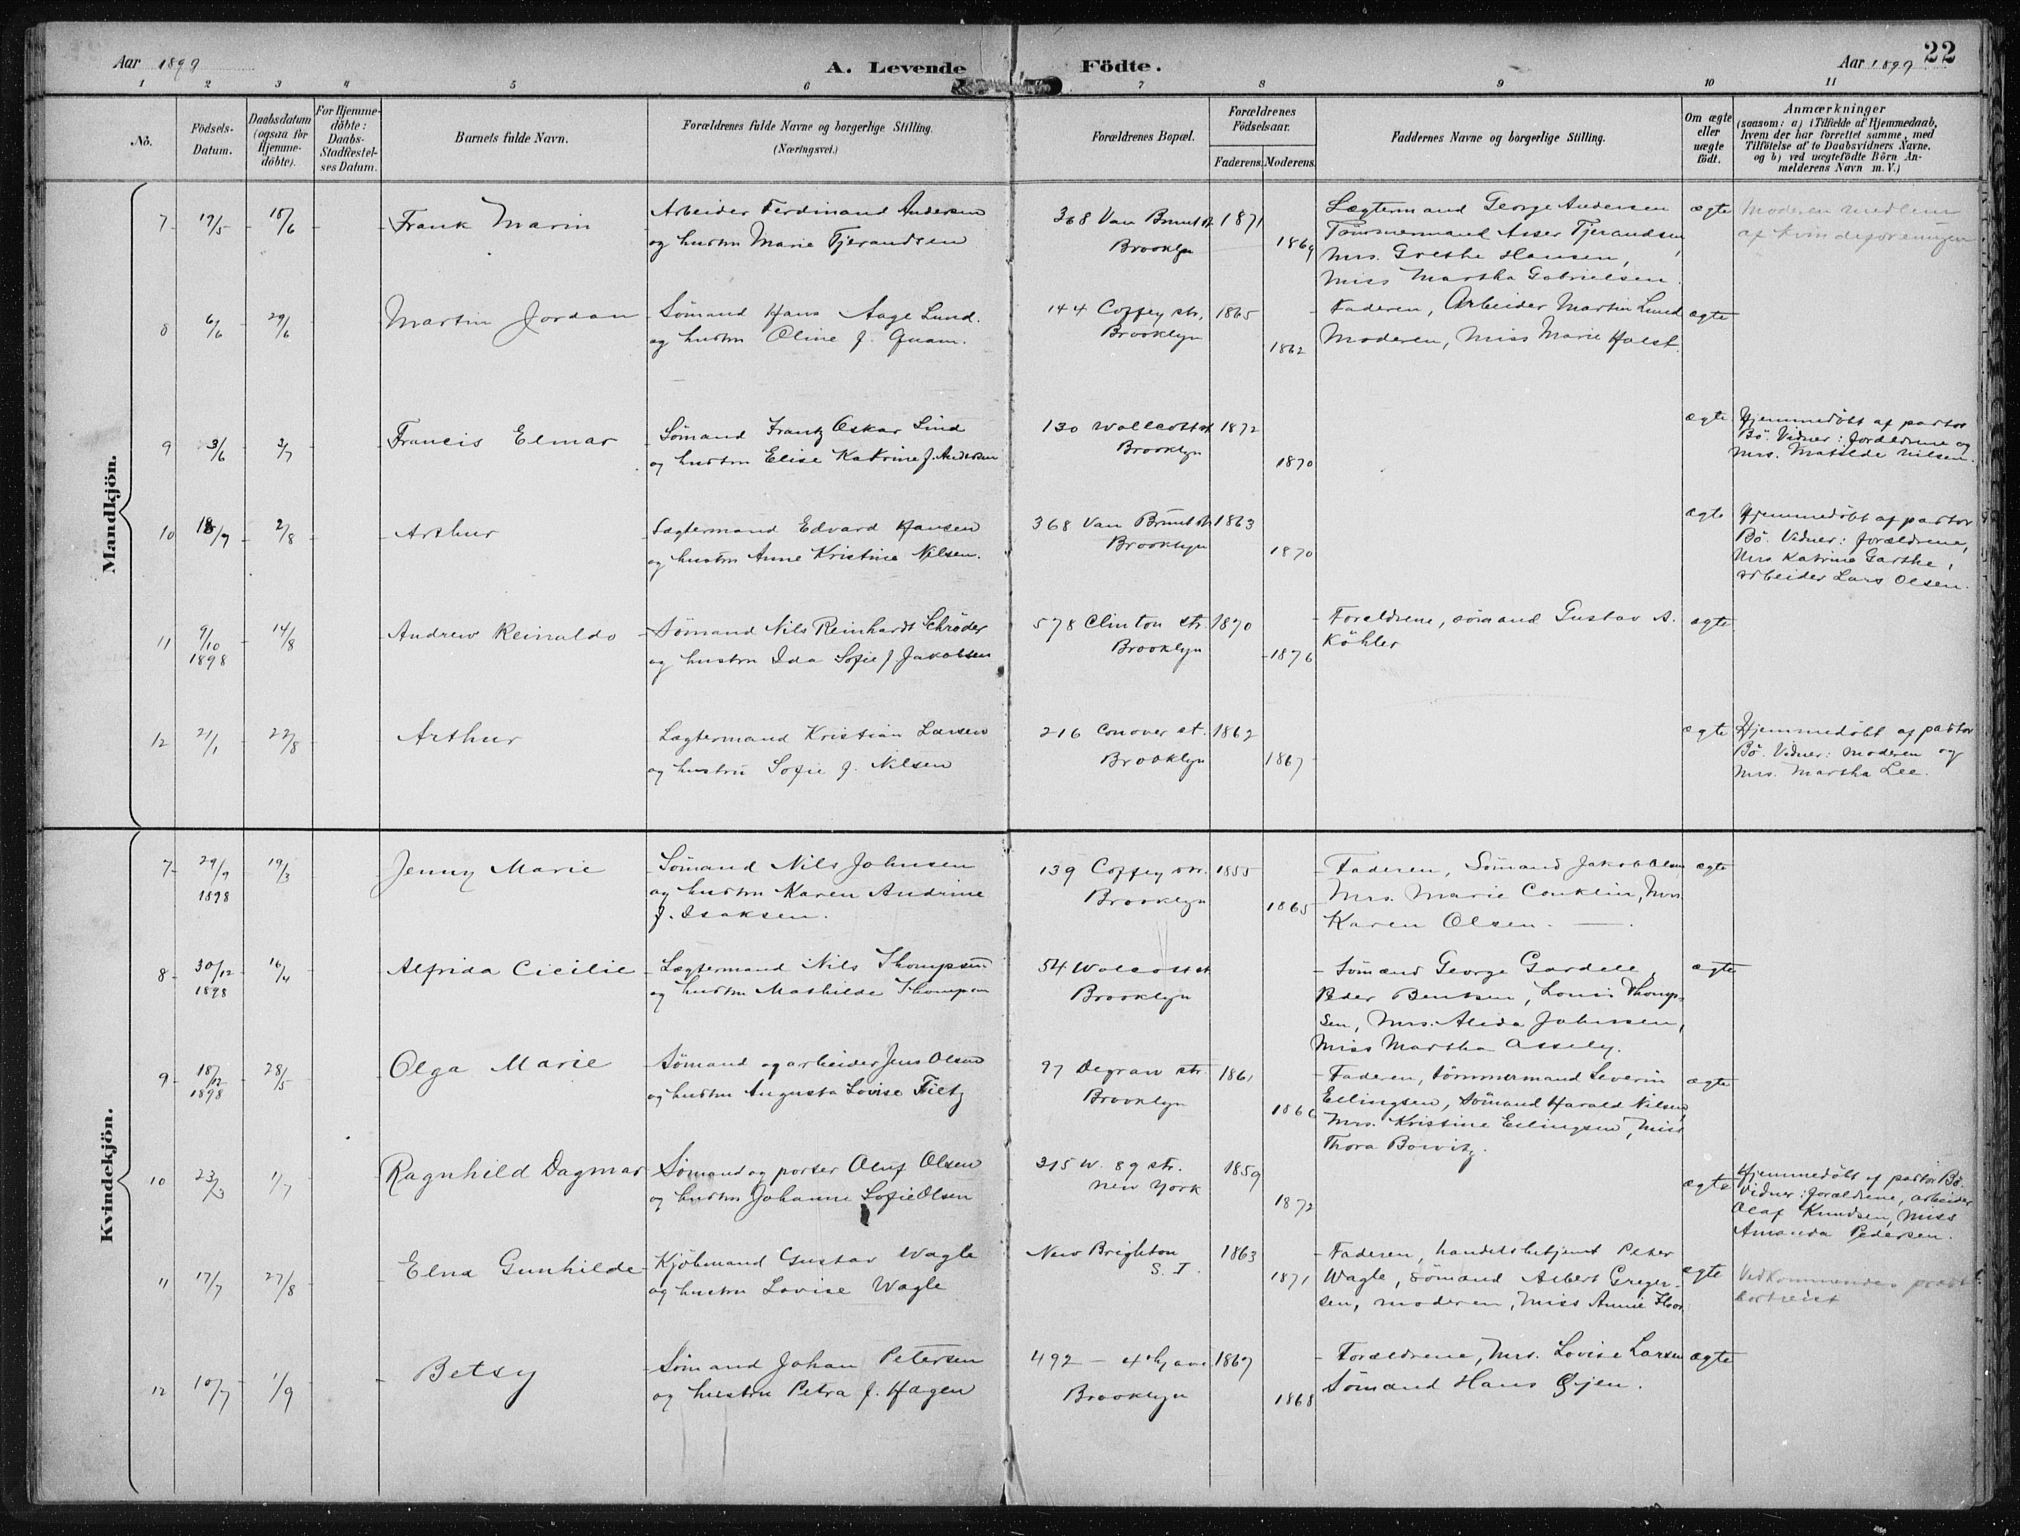 22
Aar 1899
A. Levende Födte.
Aar 1899
1 2 3 4 5 6 7 8 9 10 11
No.
Födsels-
Datum.
Daabsdatum
(ogsaa for
Hjemme-
döbte).
For Hjemme-
döbte:
Daabs-
Stadfestel-
ses Datum.
Barnets fulde Navn.
Forældrenes fulde Navne og borgerlige Stilling.
(Næringsvei.)
Forældrenes Bopæl.
Forældrenes
Födselsaar.
Faderens. Moderens.
Faddernes Navne og borgerlige Stilling.
Om ægte
eller
uægte
födt.
Anmærkninger
(saasom: a) i Tilfælde af Hjemmedaab,
hvem der har forrettet samme, med
Tilföielse af to Daabsvidners Navne,
og b) ved uægtefödte Börn An-
melderens Navn m. V.)
Mandkjön.
7 19/5 18/6 Frank Marin
Arbeider Ferdinand Andersen
og hustru Marie Tjerandsen
368 Van Brunt st
Brooklyn
1871
1869
Lægtermand George Andersen
Tömmermand Asser Tjerandsen,
Mrs. Grethe Hansen,
Miss Martha Gabrielsen.
ægte
Moderen medlem
af kvindeforeningen
8 6/6 29/6 Martin Jordan
Sømand Hans Aage Lund.
og hustru Oline f. Quam.
144 Coffey str.
Brooklyn
1865
1862
Faderen, Arbeider Martin Lund
Moderen, Miss Marie Holst.
ægte
9 3/6 3/7 Francis Elmar
Sømand Frantz Oskar Lind
og hustru Elise Katrine f. Andersen
130 Wallcott st
Brooklyn
1872
1870
ægte
Hjemmedøbt af pastor
Bö. Vidner: forældrene og
Mrs. Matilde Nilsen.
10 18/7 2/8 Arthur
Lægtermand Edvard Hansen
og hustru Anne Kristine Nilsen.
368 Van Brunt st
Brooklyn
1863
1870
ægte
Hjemmedöbt af pastor
Bö. Vidner: forældrene,
Mrs Katrine Garthe,
arbeider Lars Olsen.
11 9/10 1898 14/8 Andrew Reinaldo
Sømand Nils Reinhardt Schrøder
og hustru Ida Sofie f. Jakobsen
578 Clinton str.
Brooklyn
1870
1876
Forældrene, sömand Gustav A.
Köhler
ægte
12 21/1 22/8 Arthur
Lægtermand Kristian Larsen
og hustru Sofie f. Nilsen
216 Conover st.
Brooklyn
1862
1867
ægte
Hjemmedöbt af pastor
Bö. Vidner: moderen og
Mrs. Martha Lee.
Kvindekjön.
7 29/9 1898 19/3 Jenny Marie
Sømand Nils Johnsen
og hustru Karen Andrine
f. Isaksen.
139 Coffey str.
Brooklyn
1855
1865
Faderen, Sömand Jakob Olsen
Mrs. Marie Conklin, Mrs.
Karen Olsen.
ægte
8 30/12 1898 16/4 Alfrida Cicilie
Lægtermand Nils Thompsen
og hustru Mathilde Thompson
54 Walcott st
Brooklyn
Sömænd George Gardell,
Peder Bentsen, Louis Thomp-
sen, Mrs. Alida Johnsen,
Miss Martha Assely.
ægte
9 18/12 1898 28/5 Olga Marie
Sømand og arbeider Jens Olsen
og hustru Augusta Lovise Tietz
97 Degraw str
Brooklyn
1861
1866
Faderen, tömmermand Severin
Ellingsen, Sömand Harald Nilsen,
Mrs. Kristine Ellingsen, Miss
Thora Bowitz.
ægte
10 23/3 1/7 Ragnhild Dagmar
Sømand og porter Oluf Olsen
og hustru Johanne Sofie Olsen
315 W. 89 str.
New York
1859
1872
ægte
Hjemmedöbt af pastor Bö.
Vidner: forældrene, arbeider
Olaf Knudsen, Miss
Amanda Pedersen.
11 17/7 27/8 Elna Gunhilde
Kjöbmand Gustav Wagle
og hustru Lovise Wagle
New Brighton
S. I.
1863
1871
Faderen, handelsbetjent Peter
Wagle, sömand Albert Greger-
sen, moderen, Miss Annie
ægte
Vedkommendes
bortreist
12 10/7 1/9 Betsy
Sømand Johan Petersen
og hustru Petra f. Hagen
492 – 4th ave
Brooklyn
1867
1868
Forældrene, Mrs. Lovise Larsen
Sömand Hans Gjen.
ægte